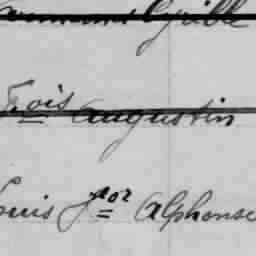 Cyrille
Frois Augustin
Louis Jnor Alphonse